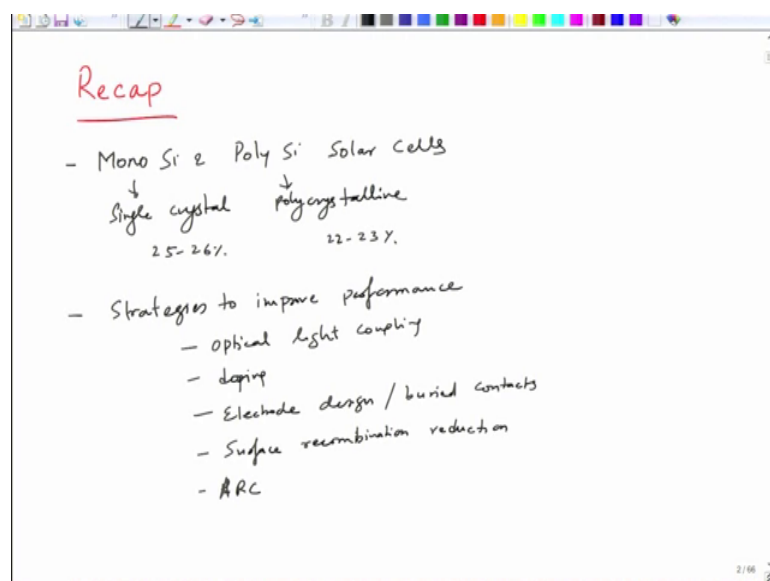 Recap
- Mono Si & Poly Si Solar Cells
Single crystal polycrystalline
25-26% 22-23%
- Strategies to improve performance
- optical light coupling
- doping
- Electrode design / buried contacts
- Surface recombination reduction
- ARC
2/66